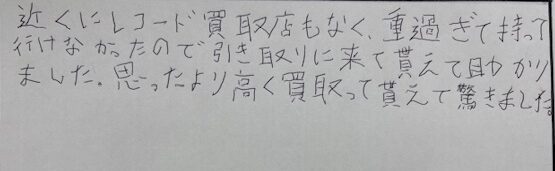 近くにレコード買取店もなく、重過ぎて持って
行けなかったので引き取りに来て貰えて助かり
ました。思ったより高く買取って貰えて驚きました。